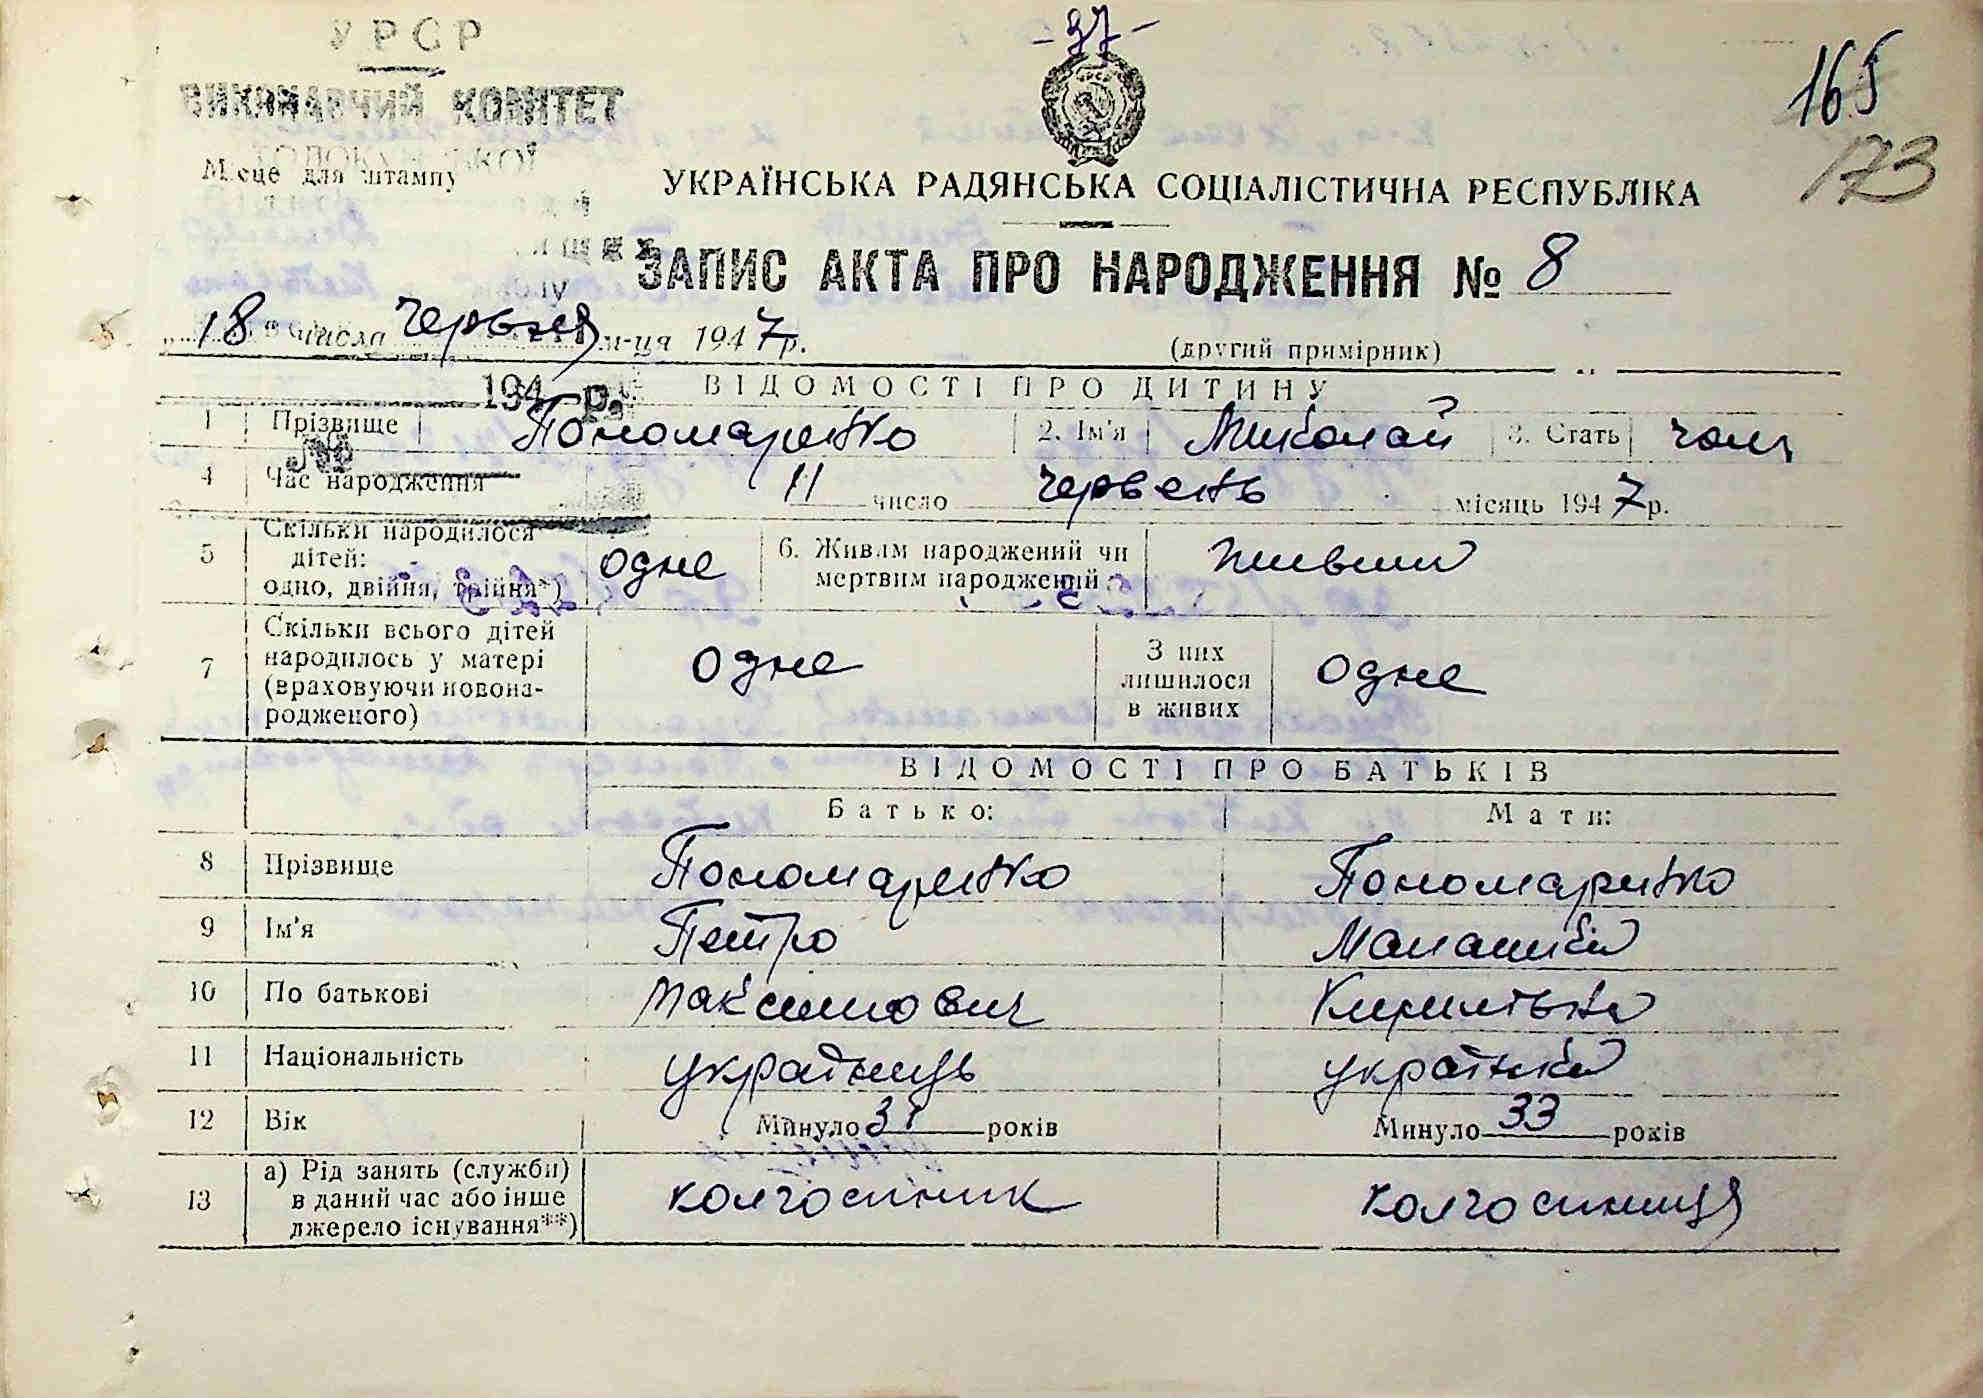 УРСР
-97-
165
173
ВИКОНАВЧИЙ КОМІТЕТ
Місце для штампу
УКРАЇНСЬКА РАДЯНСЬКА СОЦІАЛІСТИЧНА РЕСПУБЛІКА
ЗАПИС АКТА ПРО НАРОДЖЕННЯ № 8
„18“ числа червня м-ця 1947 р.
(другий примірник)
194 р.
№
ВІДОМОСТІ ПРО ДИТИНУ
1 Прізвище Пономаренко 2. Ім'я Миколай 3. Стать чол.
4 Час народження 11 число червень місяць 1947 р.
5 Скільки народилося дітей: одно, двійня, трійня*) одне 6. Живим народжений чи мертвим народжений живим
7 Скільки всього дітей народилось у матері (враховуючи новонародженого) одне З них лишилося в живих одне
ВІДОМОСТІ ПРО БАТЬКІВ
Батько: Мати:
8 Прізвище Пономаренко Пономаренко
9 Ім'я Петро
10 По батькові Максимович Кирилівна
11 Національність українець українка
12 Вік Минуло років Минуло 33 років
13 а) Рід занять (служби) в даний час або інше джерело існування**) колгоспник колгоспниця